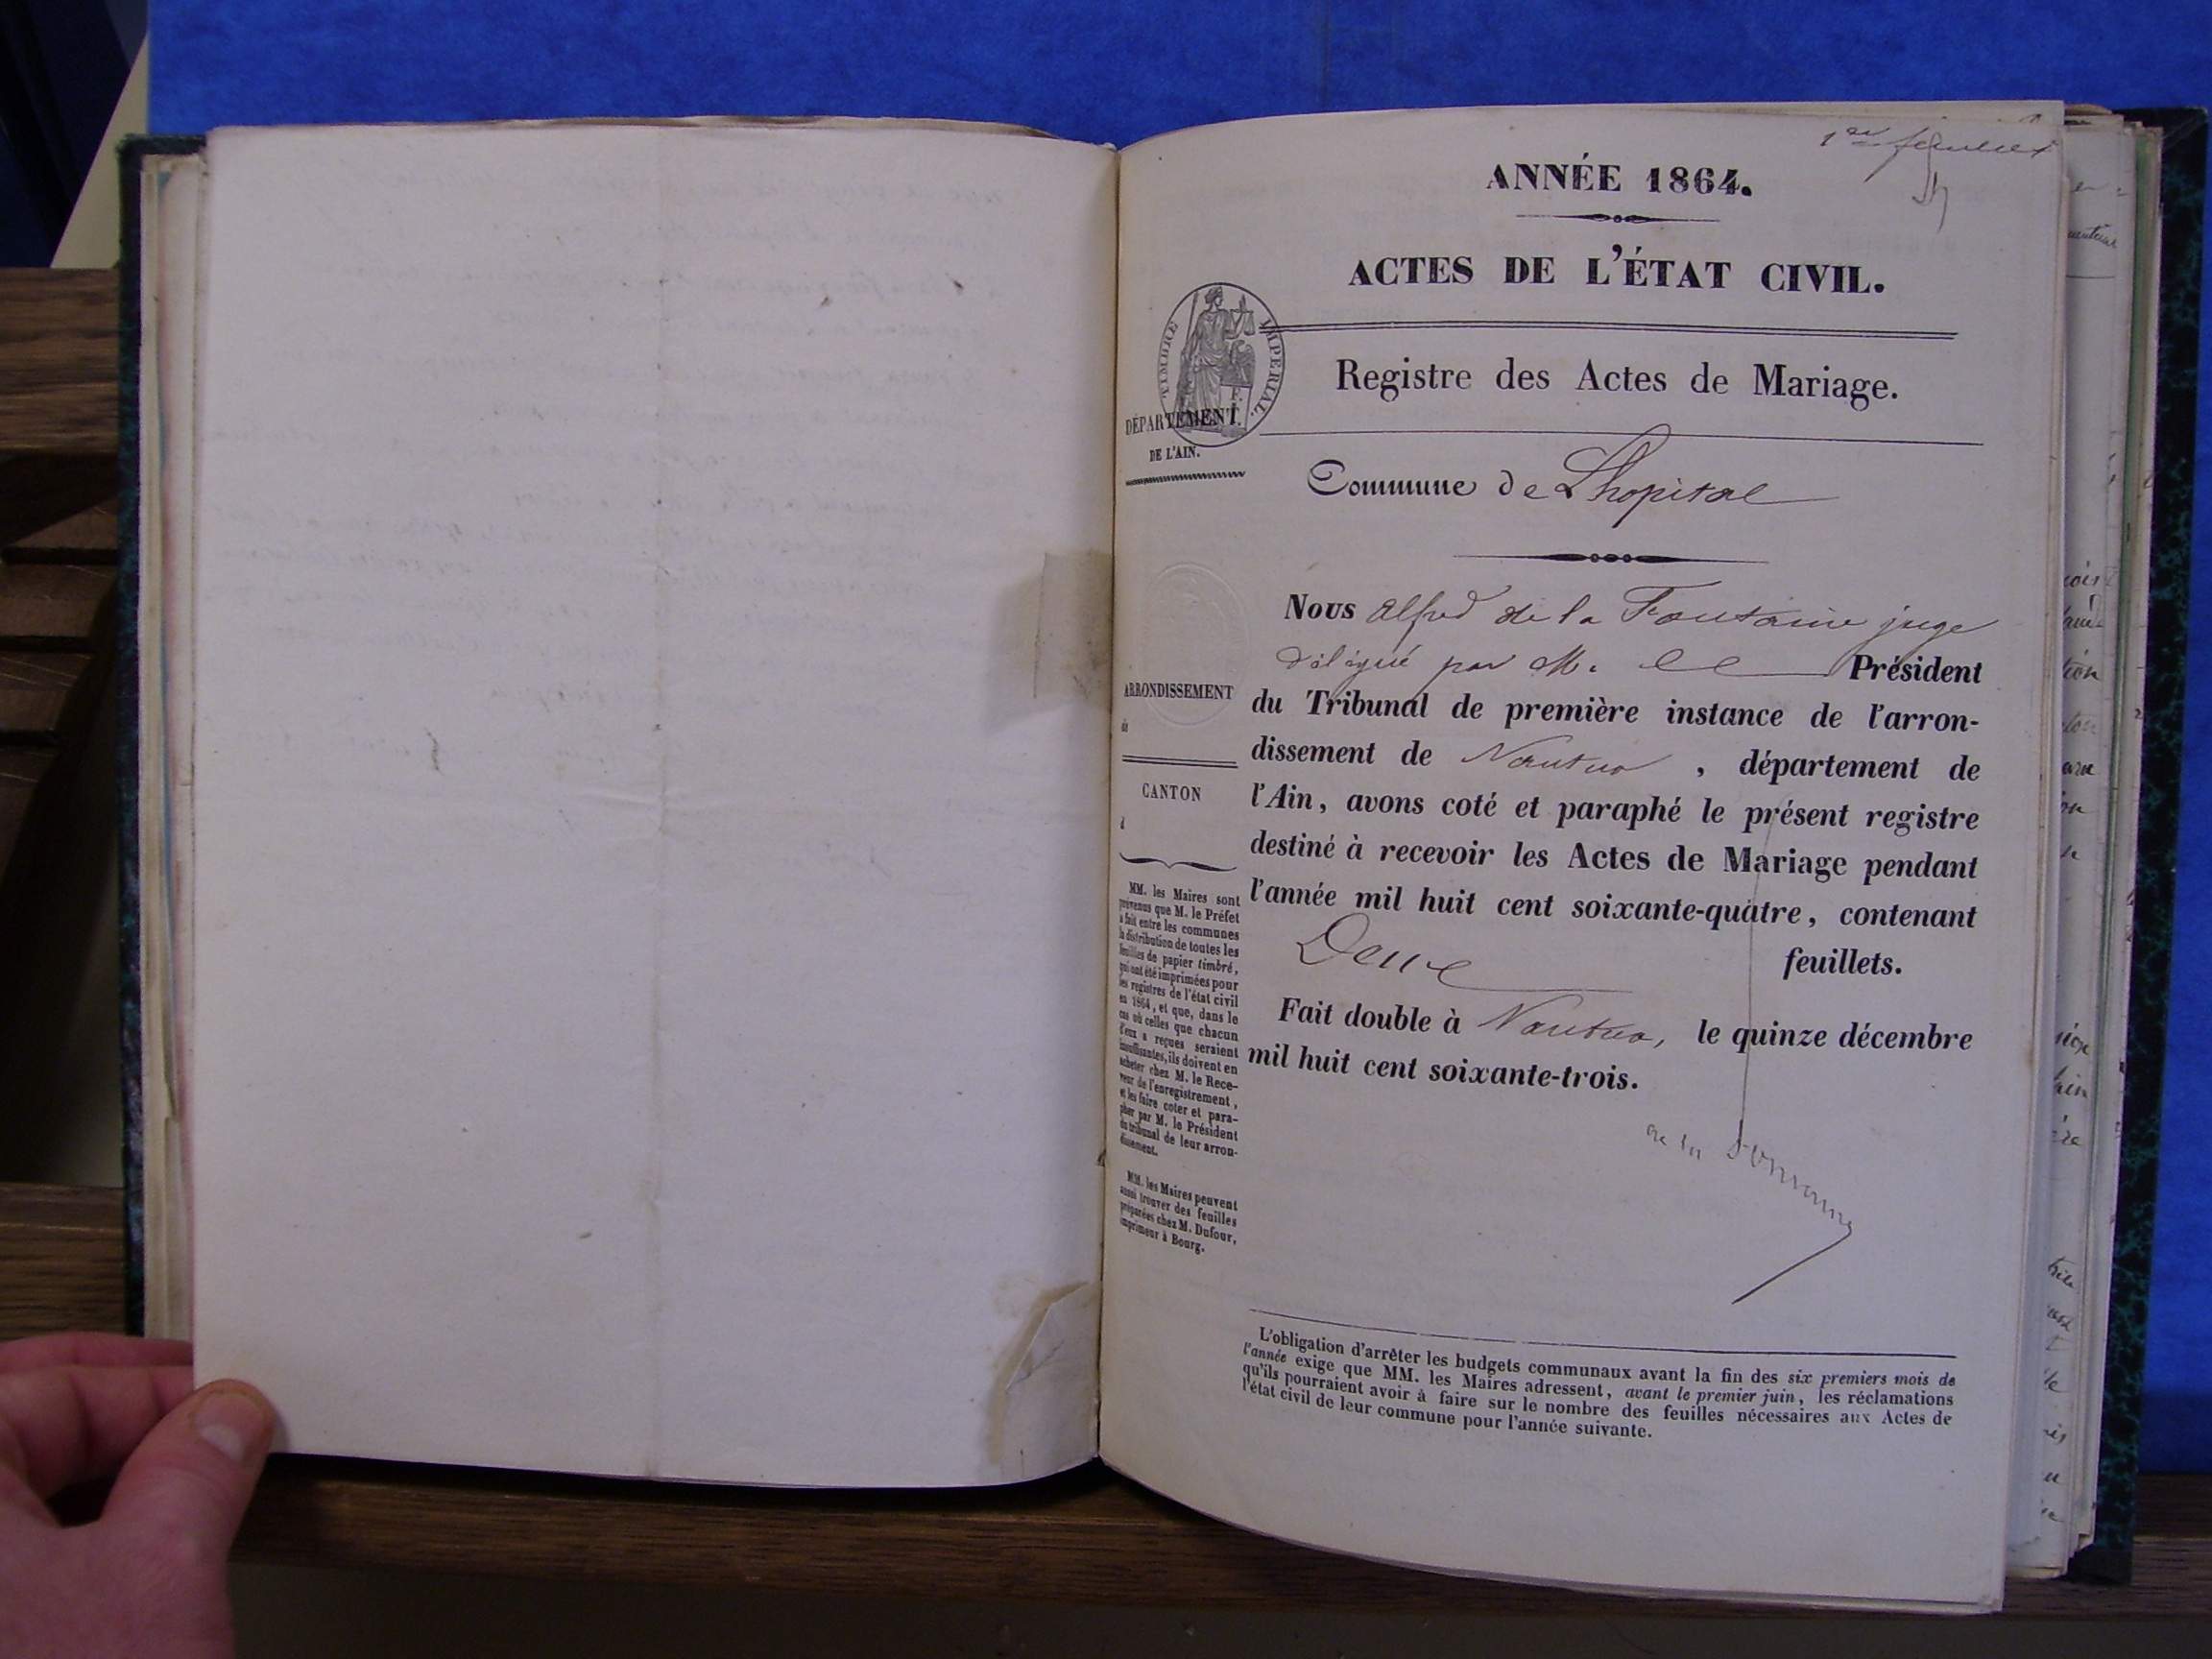 1er feuillet
ANNÉE 1864.
ACTES DE L'ÉTAT CIVIL.
TIMBRE IMPERIAL.
Registre des Actes de Mariage.
DÉPARTEMENT
DE L'AIN.
Commune de Lhopital
Nous Alfred de la Fontaine juge
délégué par M. le Président
du Tribunal de première instance de l'arron-
dissement de Nantua, département de
l'Ain, avons coté et paraphé le présent registre
destiné à recevoir les Actes de Mariage pendant
l'année mil huit cent soixante-quatre, contenant
Deux feuillets.
Fait double à Nantua, le quinze décembre
mil huit cent soixante-trois.
ARRONDISSEMENT
de
CANTON
d
MM. les Maires sont
prévenus que M. le Préfet
a fait entre les communes
la distribution de toutes les
feuilles de papier timbré,
qui ont été imprimées pour
les registres de l'état civil
en 1864, et que, dans le
cas où celles que chacun
d'eux a reçues seraient
insuffisantes, ils doivent en
acheter chez M. le Rece-
veur de l'enregistrement,
et les faire coter et para-
pher par M. le Président
du tribunal de leur arron-
dissement.
MM. les Maires peuvent
aussi trouver des feuilles
préparées chez M. Dufour,
imprimeur à Bourg.
L'obligation d'arrêter les budgets communaux avant la fin des six premiers mois de
l'année exige que MM. les Maires adressent, avant le premier juin, les réclamations
qu'ils pourraient avoir à faire sur le nombre des feuilles nécessaires aux Actes de
l'état civil de leur commune pour l'année suivante.